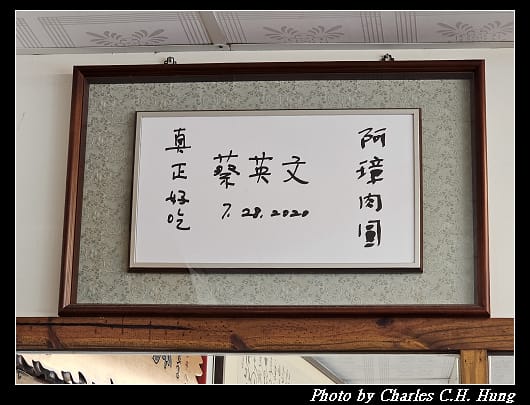 阿璋肉圓
蔡英文
7.28.2020
真正好吃
Photo by Charles C.H. Hung